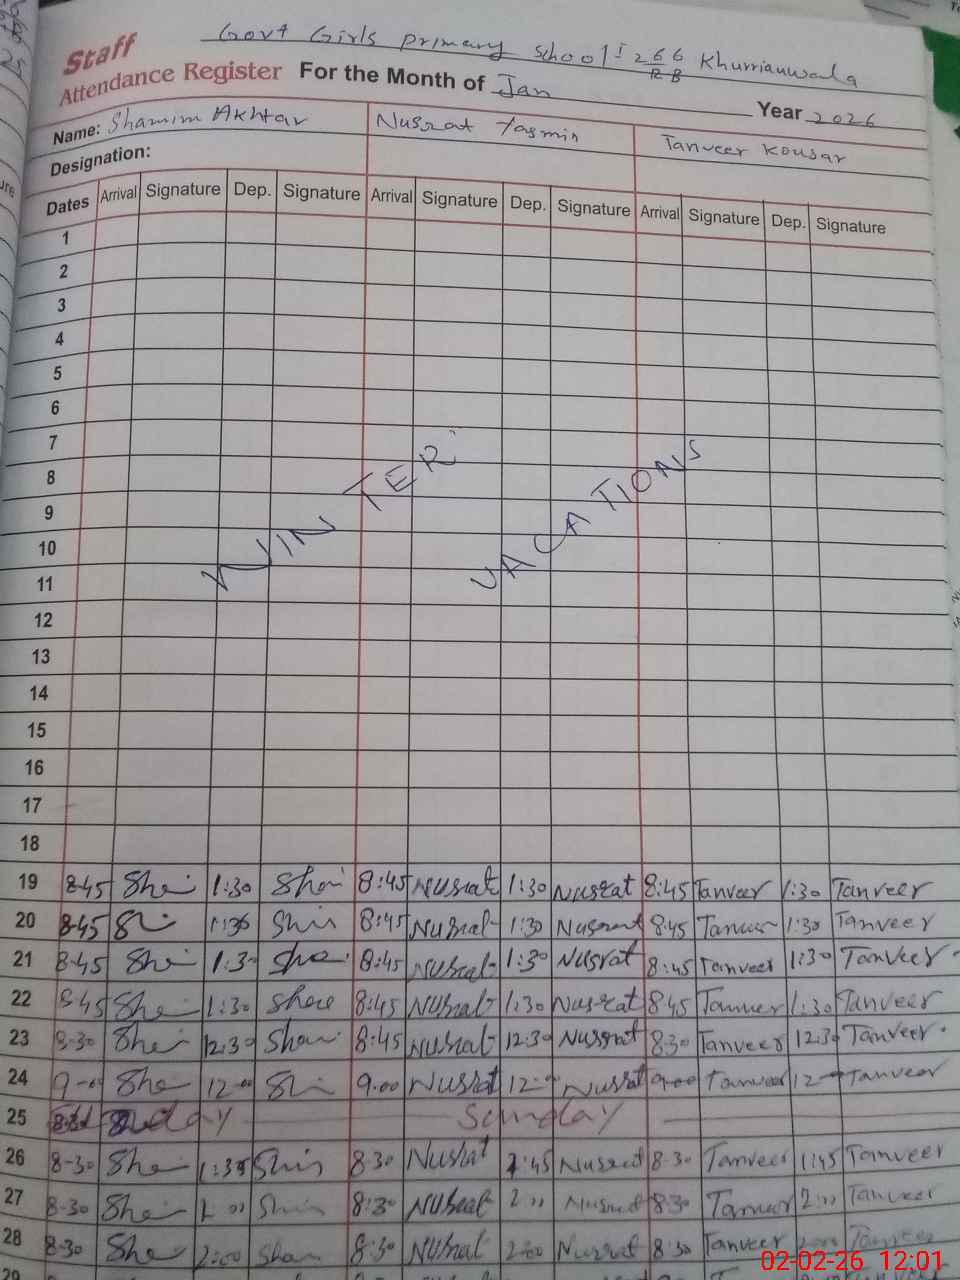 Govt Girls primary school 266 RB Khurrianwala
Staff
Attendance Register For the Month of Jan Year 2026
Name: Shamim Akhtar Nusrat Yasmin Tanveer Kousar
Designation:
Dates Arrival Signature Dep. Signature Arrival Signature Dep. Signature Arrival Signature Dep. Signature
1
2
3
4
5
6
7
8
9
10
11
12
13
14
15
16
17
18
WINTER VACATIONS
19 8-45 She 1:30 8:45 Nusrat 1:30 Nusrat 8:45 Tanveer 1:30 Tanveer
20 8-45 1:30 8:45 Nusrat 1:30 Nusrat 8:45 Tanveer 1:30 Tanveer
21 8-45 She 1:30 8:45 Nusrat 1:30 Nusrat 8:45 Tanveer 1:30 Tanveer
22 8-45 She 1:30 8:45 Nusrat 1:30 Nusrat 8:45 Tanveer 1:30 Tanveer
23 8-30 She 12:30 8:45 Nusrat 12:30 Nusrat 8:30 Tanveer 12:30 Tanveer
24 9-00 She 12-00 9:00 Nusrat 12:00 Nusrat 9:00 Tanveer 12 Tanveer
25 Sunday
26 8-30 She 8:30 Nusrat 1:45 Nusrat 8-30 Tanveer 1:45 Tanveer
27 8-30 She 8:30 Nusrat 2:00 Nusrat 8:30 Tanveer 2:00 Tanveer
28 8-30 She 2:00 8:30 Nusrat 2:00 Nusrat 8:30 Tanveer Tanveer
29
02-02-26 12:01